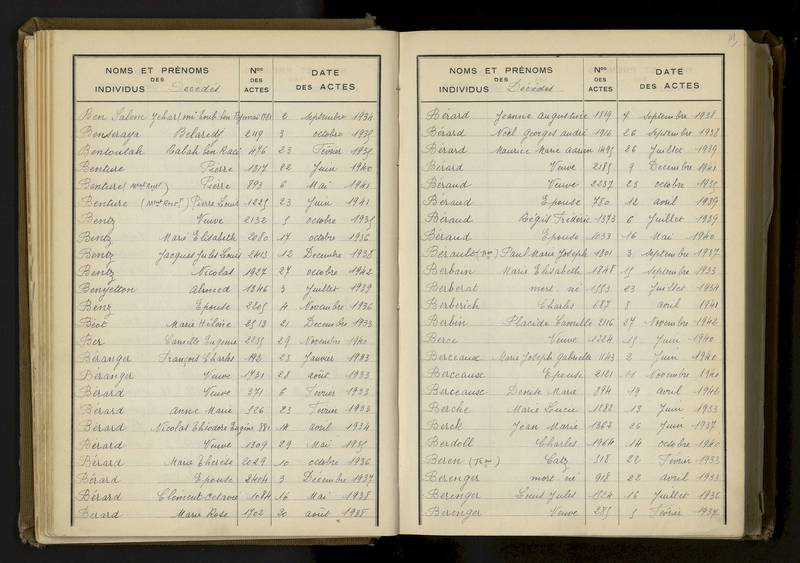 NOMS ET PRÉNOMS DES INDIVIDUS Décédés Nos DES ACTES DATE DES ACTES
Ben Salem 2 Septembre 1934
Benseraya Belaredj 2119 3 octobre 1935
Bentoutah Rabah ben Kaci 476 23 Février 1935
Benture Pierre 1317 22 Juin 1940
Benture Pierre 893 6 Mai 1941
Benture Pierre Louis 1225 23 Juin 1941
Bentz Veuve 2132 5 octobre 1935
Bentz Marie Elisabeth 2080 17 octobre 1936
Bentz Jacques Jules Louis 2413 12 Décembre 1938
Bentz Nicolas 1927 27 octobre 1942
Benyetton Ahmed 1346 3 Juillet 1939
Benz Epouse 2205 4 Novembre 1936
Béot Marie Héloïse 2513 21 Décembre 1933
Ber Camille Eugénie 2235 29 Novembre 1940
Béranger François Charles 192 23 Janvier 1933
Béranger Veuve 1731 28 août 1933
Bérard Veuve 371 6 Février 1933
Bérard Anne Marie 526 23 Février 1933
Bérard Nicolas Théodore Eugène 881 14 avril 1934
Bérard Veuve 1309 29 Mai 1935
Bérard Marie Thérèse 2029 10 octobre 1936
Bérard Epouse 2404 3 Décembre 1937
Bérard Clément octave 1084 16 Mai 1938
Bérard Marie Rose 1702 20 août 1938
NOMS ET PRÉNOMS DES INDIVIDUS Décédés Nos DES ACTES DATE DES ACTES
Bérard Jeanne Augustine 1819 7 Septembre 1938
Bérard Noël Georges andré 1916 26 Septembre 1938
Bérard Maurice Marie Adrien 1495 26 Juillet 1939
Bérard Veuve 2185 9 Décembre 1941
Béraud Veuve 2237 23 octobre 1935
Béraud Epouse 780 12 avril 1939
Béraud Frédéric 1373 6 Juillet 1939
Béraud Epouse 1033 16 Mai 1940
Berault Paul Marie Joseph 1801 3 Septembre 1937
Berbain Marie Elisabeth 1848 15 Septembre 1933
Berberat mort né 1553 23 Juillet 1934
Berberich Charles 687 3 avril 1941
Berbin Placide Camille 2116 27 Novembre 1942
Berce Veuve 1224 15 Juin 1940
Berceaud Marie Joseph Gabrielle 1143 2 Juin 1940
Berceause Epouse 2121 11 Novembre 1940
Berceause Denise Marie 894 19 avril 1942
Berche Marie Lucie 1282 13 Juin 1933
Berck Jean Marie 1362 26 Juin 1937
Berdoll Charles 1964 14 octobre 1940
Beren Catz 518 22 Février 1933
Berenger mort né 918 22 avril 1933
Berenger Louis Jules 1524 16 Juillet 1936
Berenger Veuve 285 5 Février 1937